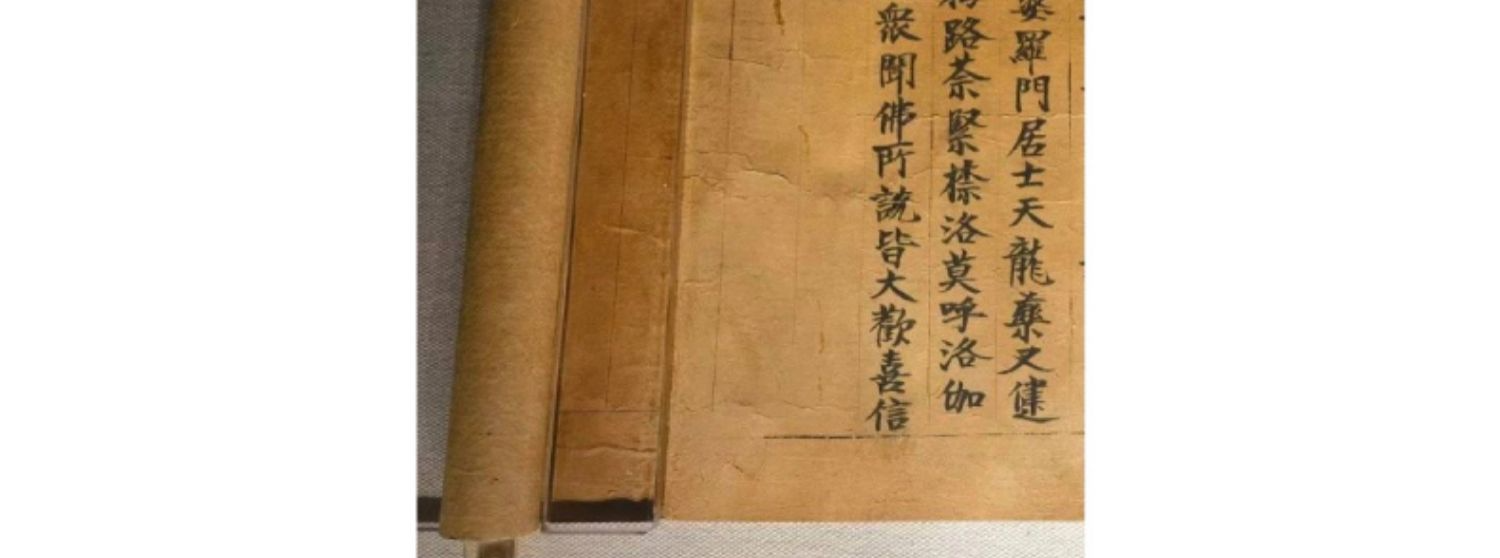 婆羅門居士天龍藥叉健
路荼緊捺洛莫呼洛伽
衆聞佛所說皆大歡喜信